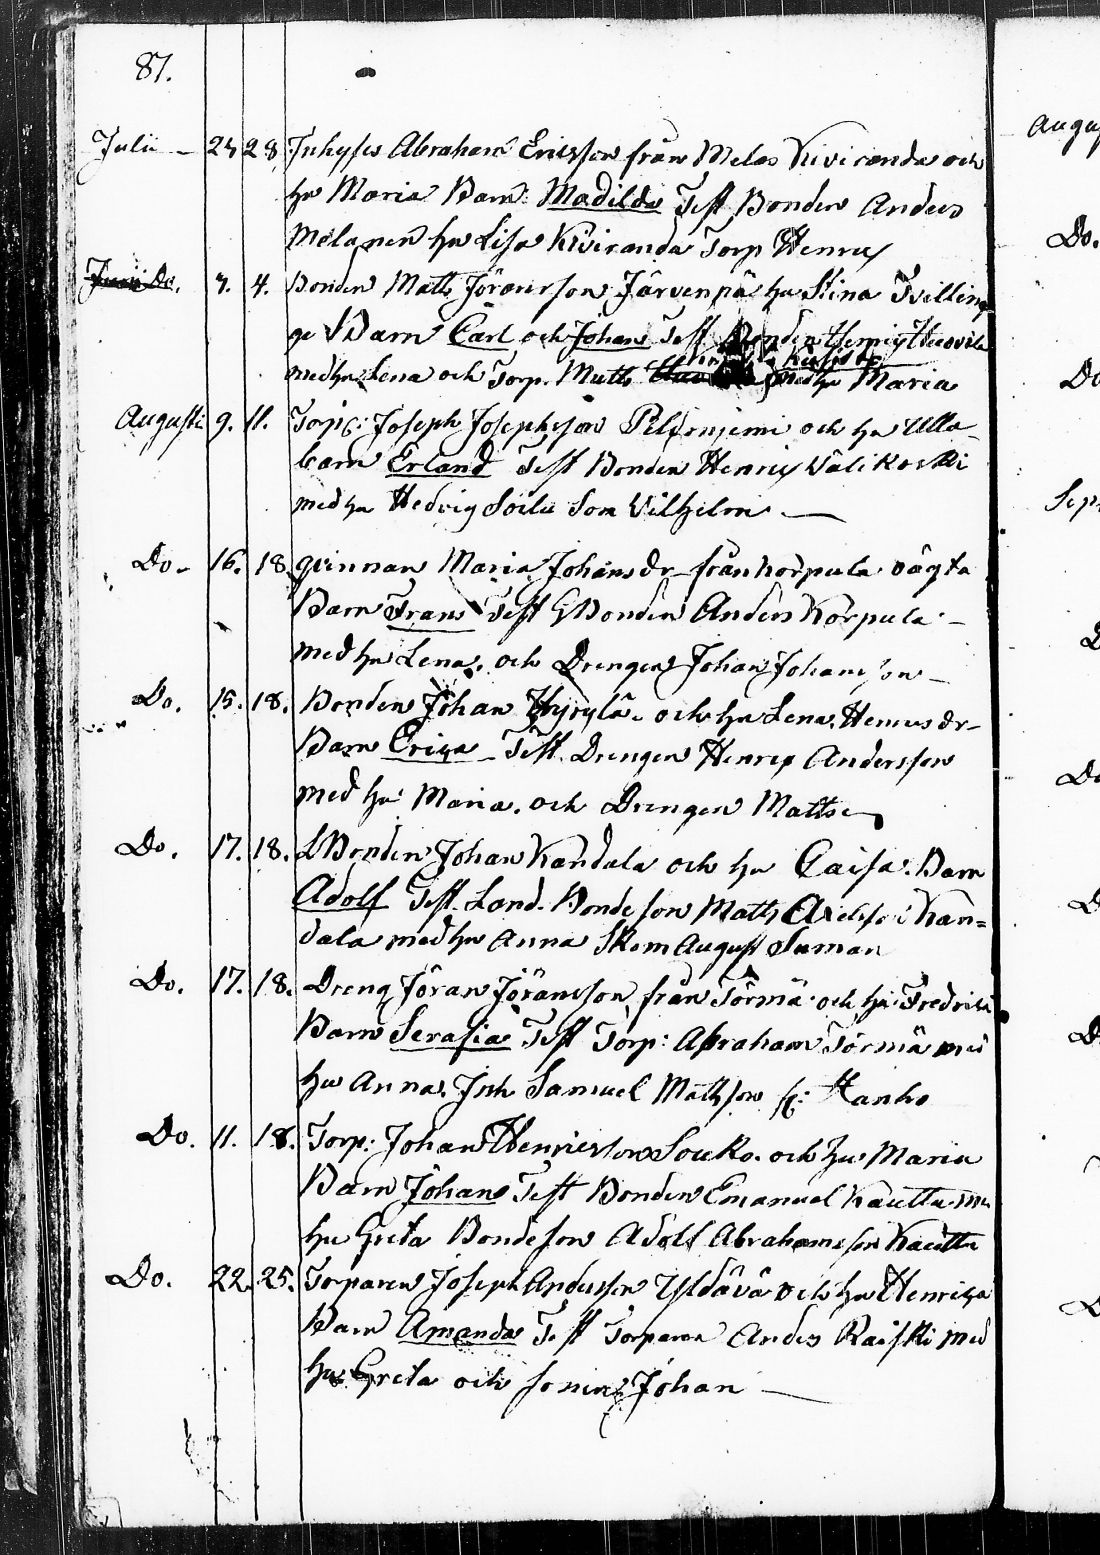 87.
Julii 24 28 Inhyses Abraham Ericsson från Melas Kiviranda och
hu Maria Barn: Madilda Test Bonden Anders
Melanen hu Lisa Kiviranda Torp Henrix
Do. 3. 4. Bonden Matts Jöransson Järvenpä hu Stina Tvilling
Barn Carl och Johan Test Bonden Henrix
med hu Lena och Torp. Matts med hu Maria
Augusti 9. 11. Torp: Joseph Josephsson och hu Ulla
barn Erland Test Bonden Henrix Välikoski
med hu Hedvig Soilu Son Vilhelm
Do 16. 18 qvinnan Maria Johansdr från Korpula oägta
Barn Frans Test Bonden Anders Korpula
med hu Lena. och Drengen Johan Johansson
Do. 15. 18. Bonden Johan Hyrylä. och hu Lena Henricsdr
Barn Erica Test. Drengen Henrix Andersson
med hu Maria. och Drengen Matts
Do. 17. 18. LBonden Johan Kandala och hu Caisa. Barn
Adolf Test. Land. Bondeson Matts Axelss: i Kan=
dala med hu Anna Skom August Suman
Do. 17. 18. Dreng Jöran Jöransson från Törmä och hu Fredrica
Barn Serafia Test Torp: Abraham Törmä med
hu Anna. Inh Samuel Mathsson Hanho
Do. 11. 18. Torp: Johan Henricsson Souko. och hu Maria
Barn Johan Test Bonden Emanuel Kautta
hu Greta Bondeson Adolf Abrahamsson Kautta
Do. 22. 25. Torparen Joseph Andersson Yldävä och hu Henrica
Barn Amanda Test Torparen Anders Raiski med
hu Greta och sonen Johan
Augu
Do.
Do
Sep
Do